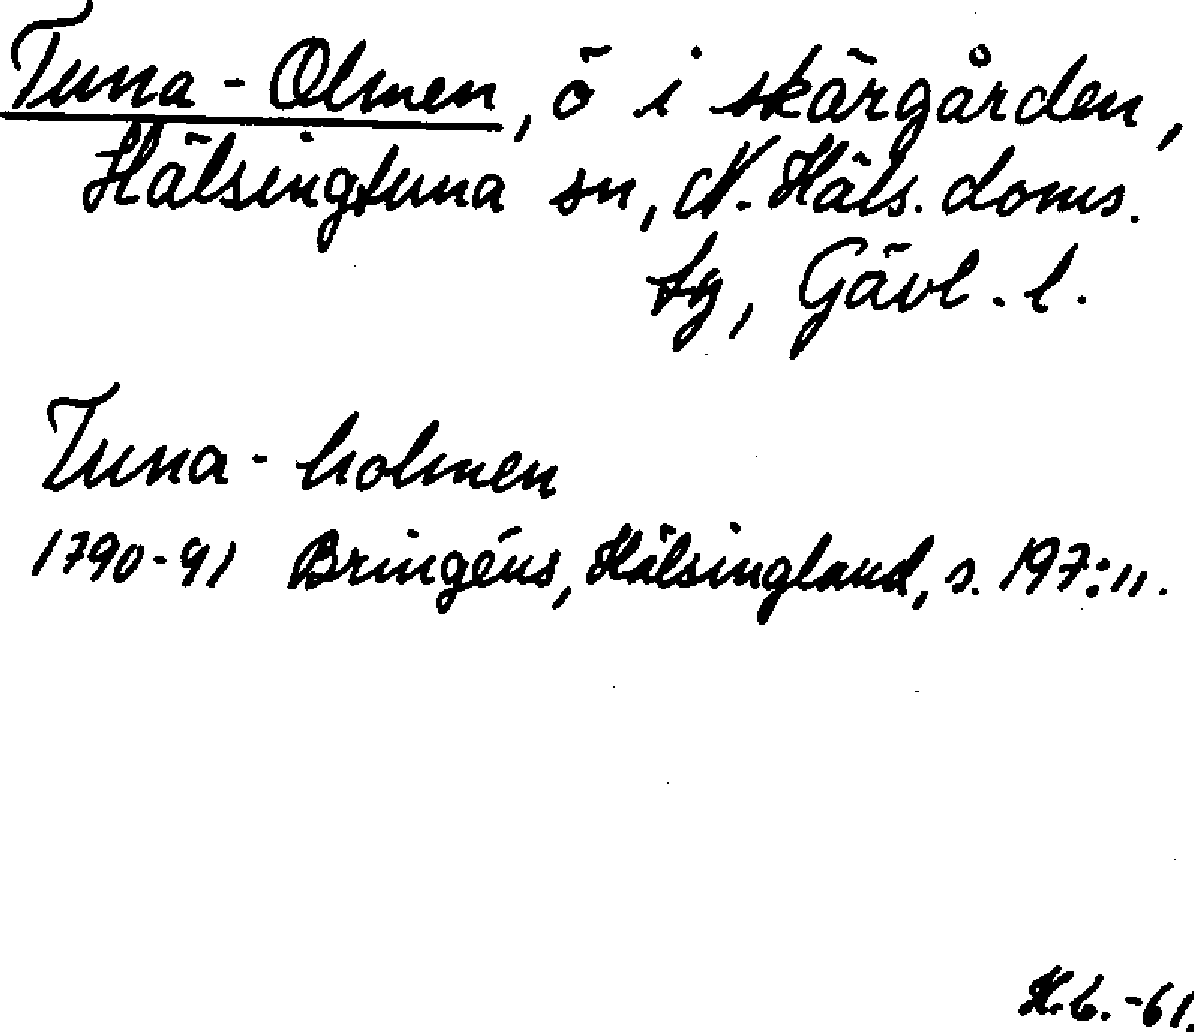 Tuna-Olmen, ö i skärgården,
Hälsingtuna sn, N. Häls. doms.
tg, Gävl. l.
Tuna-holmen
1790-91 Bringéus, Hälsingland, s. 197:11.
-61.